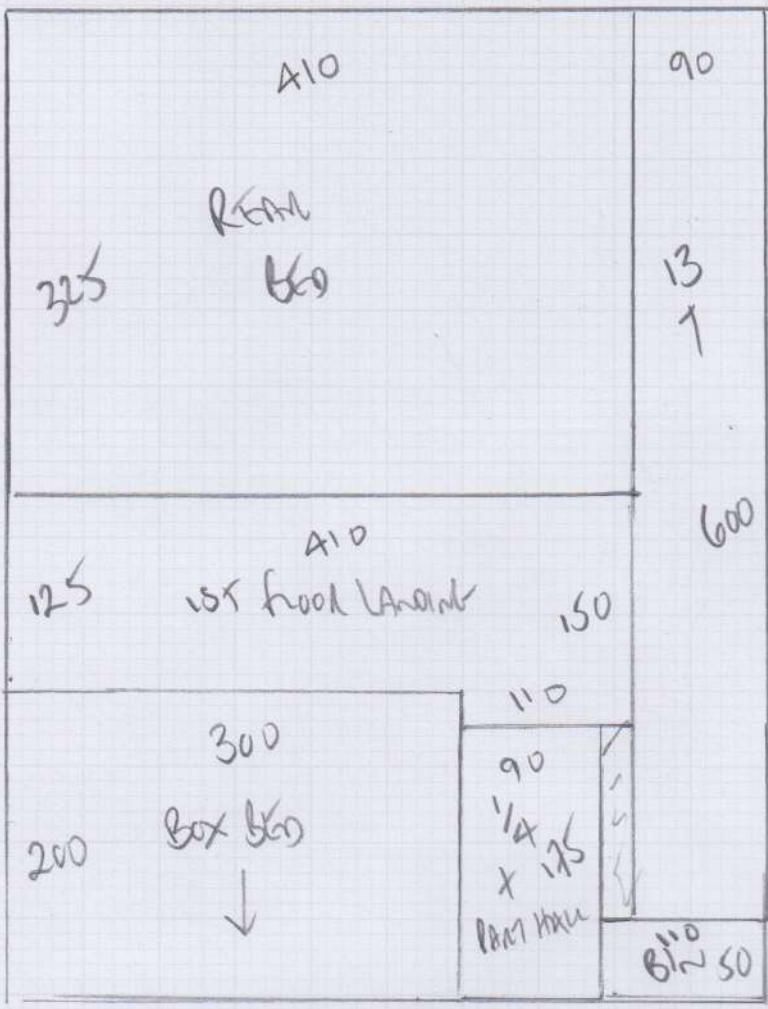 410
90
REAR
BED
325
13
600
410
125
1ST FLOOR LANDING
150
110
300
90
BOX BED
1/4
200
X 175
PART HALL
110
BIN 50